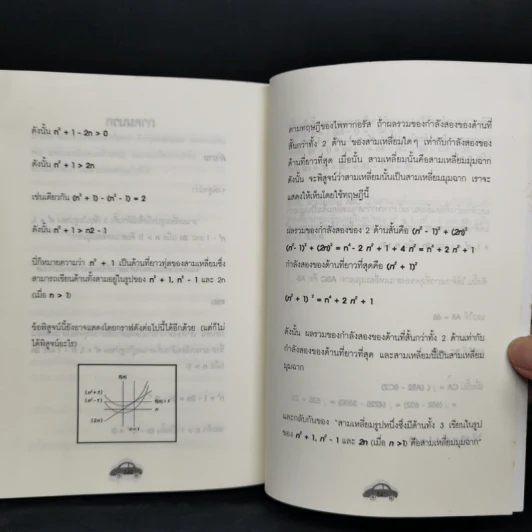 ดังนั้น n² + 1 - 2n > 0
ดังนั้น n² + 1 > 2n
เช่นเดียวกัน (n² + 1) - (n² - 1) = 2
ดังนั้น n² + 1 > n2 - 1
นี่ก็หมายความว่า n² + 1 เป็นด้านที่ยาวที่สุดของสามเหลี่ยมซึ่ง
สามารถเขียนด้านทั้งสามอยู่ในรูปของ n² + 1, n² - 1 และ 2n
(เมื่อ n > 1)
ข้อพิสูจน์นี้ยังอาจแสดงโดยกราฟดังต่อไปนี้ได้อีกด้วย (แต่ก็ไม่
ได้พิสูจน์อะไร)
f(n)
(n² + 1)
(n² - 1)
(2n)
ตามทฤษฎีของไพทากอรัส ถ้าผลรวมของกำลังสองของด้านที่
สั้นกว่าทั้ง 2 ด้าน ของสามเหลี่ยมใดๆ เท่ากับกำลังสองของ
ด้านที่ยาวที่สุด เมื่อนั้น สามเหลี่ยมนั้นคือสามเหลี่ยมมุมฉาก
ดังนั้น จะพิสูจน์ว่าสามเหลี่ยมนั้นเป็นสามเหลี่ยมมุมฉาก เราจะ
แสดงให้เห็นโดยใช้ทฤษฎีนี้
ผลรวมของกำลังสองของ 2 ด้านสั้นคือ (n² - 1)² + (2n)²
(n² - 1)² + (2n)² = n⁴ - 2 n² + 1 + 4 n² = n⁴ + 2 n² + 1
กำลังสองของด้านที่ยาวที่สุดคือ (n² + 1)²
(n² + 1) ² = n⁴ + 2 n² + 1
ดังนั้น ผลรวมของกำลังสองของด้านที่สั้นกว่าทั้ง 2 ด้านเท่ากับ
กำลังสองของด้านที่ยาวที่สุด และสามเหลี่ยมนี้เป็นสามเหลี่ยม
มุมฉาก
และกลับกันของ "สามเหลี่ยมรูปหนึ่งซึ่งมีด้านทั้ง 3 เขียนในรูป
ของ n² + 1, n² - 1 และ 2n (เมื่อ n >1) คือสามเหลี่ยมมุมฉาก"